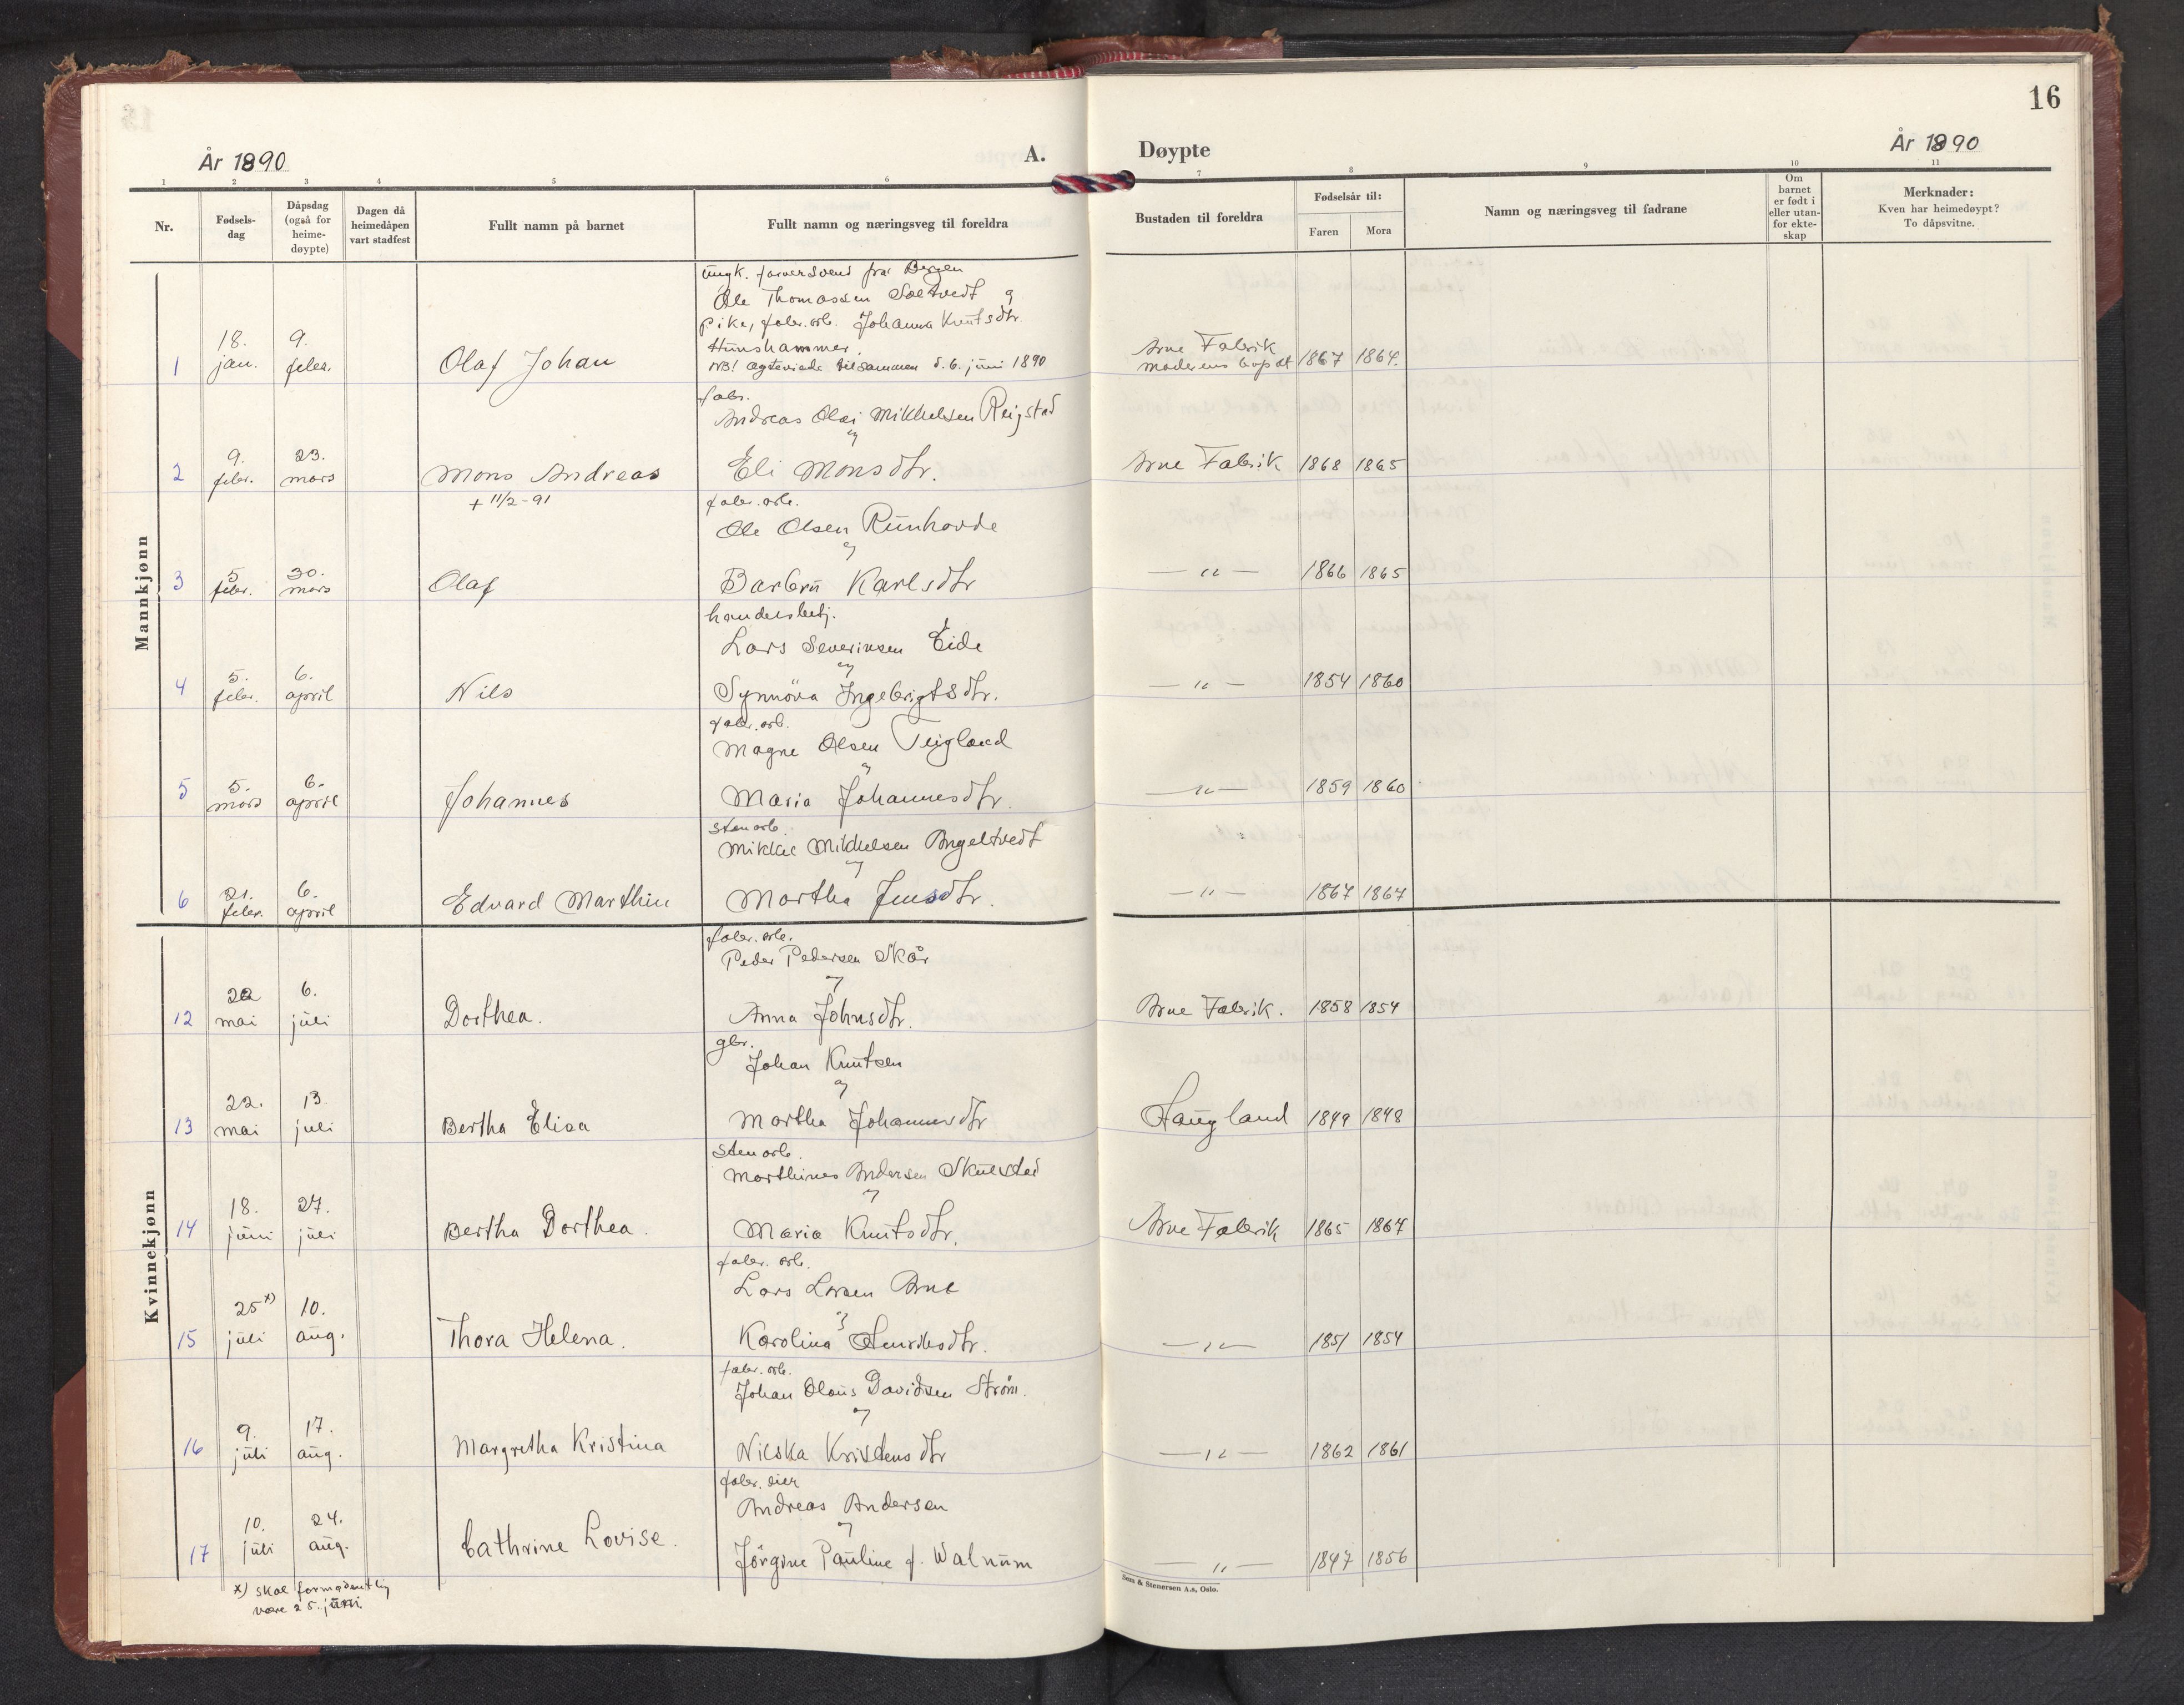 16
År 1890
A.
Døypte
År 1890
1 2 3 4 5 6 7 8 9 10 11
Nr.
Fødsels-
dag
Dåpsdag
(også for
heime-
døypte)
Dagen då
heimedåpen
vart stadfest
Fullt namn på barnet
Fullt namn og næringsveg til foreldra
Bustaden til foreldra
Fødselsår til:
Faren Mora
Namn og næringsveg til fadrane
Om
barnet
er født i
eller utan-
for ekte-
skap
Merknader:
Kven har heimedøypt?
To dåpsvitne.
Mannkjønn
ungk. farversvend fra Bergen
Ole Thomassen Soltvedt og
pike, fabr. arb. Johanna Knutsdtr
Hunshammer.
NB! Ægteviede tilsammen d. 6. juni 1890
1 18. jan. 9. febr. Olaf Johan
Arne Fabrik
moderens bopæl 1867 1864.
fabr.
Andreas Olai Mikkelsen Reigstad
og
2 9. febr. 23. mars Mons Andreas Eli Monsdtr. Arne Fabrik 1868 1865
+ 11/2-91
fabr. arb.
Ole Olsen Runhovde
og
3 5. febr. 30. mars Olaf Barbru Karlsdtr — " — 1866 1865
handelsbetj.
Lars Severinsen Eide
og
4 5. febr. 6. april Nils Synnöva Ingebrigtsdtr. — " — 1854 1860
fabr. arb.
Magne Olsen Teigland
og
5 5. mars 6. april Johannes Maria Johannesdtr. — " — 1859 1860
stenarb.
Mikkel Mikkelsen Angeltvedt
og
6 21. febr. 6. april Edvard Marthin Martha Jensdtr. — " — 1867 1867
Kvinnekjønn
fabr. arb.
Peder Pedersen Skår
og
12 22 mai 6. juli Dorthea. Anna Johnsdtr. Arne Fabrik. 1858 1854
gbr.
Johan Knutsen
og
13 22. mai 13. juli Bertha Elisa Martha Johannesdtr Haugland 1849 1848
stenarb.
Marthinus Andersen Skulstad
og
14 18. juni 27. juli Bertha Dorthea. Maria Knutsdtr. Arne Fabrik 1865 1867
fabr. arb.
Lars Larsen Arne
og
15 25 x) juli 10. aug. Thora Helena. Karolina Henriksdtr. — " — 1851 1854
fabr. arb.
Johan Olaus Davidsen Ström.
og
16 9. juli 17. aug. Margretha Kristina Nilska Kristensdtr — " — 1862 1861
fabr. eier
Andreas Andersen
og
17 10. juli 24. aug. Cathrine Lovise. Jörgine Pauline f. Walnum — " — 1847 1856
x) skal formodentlig
være 25. juni.
Sem & Stenersen A.s, Oslo.